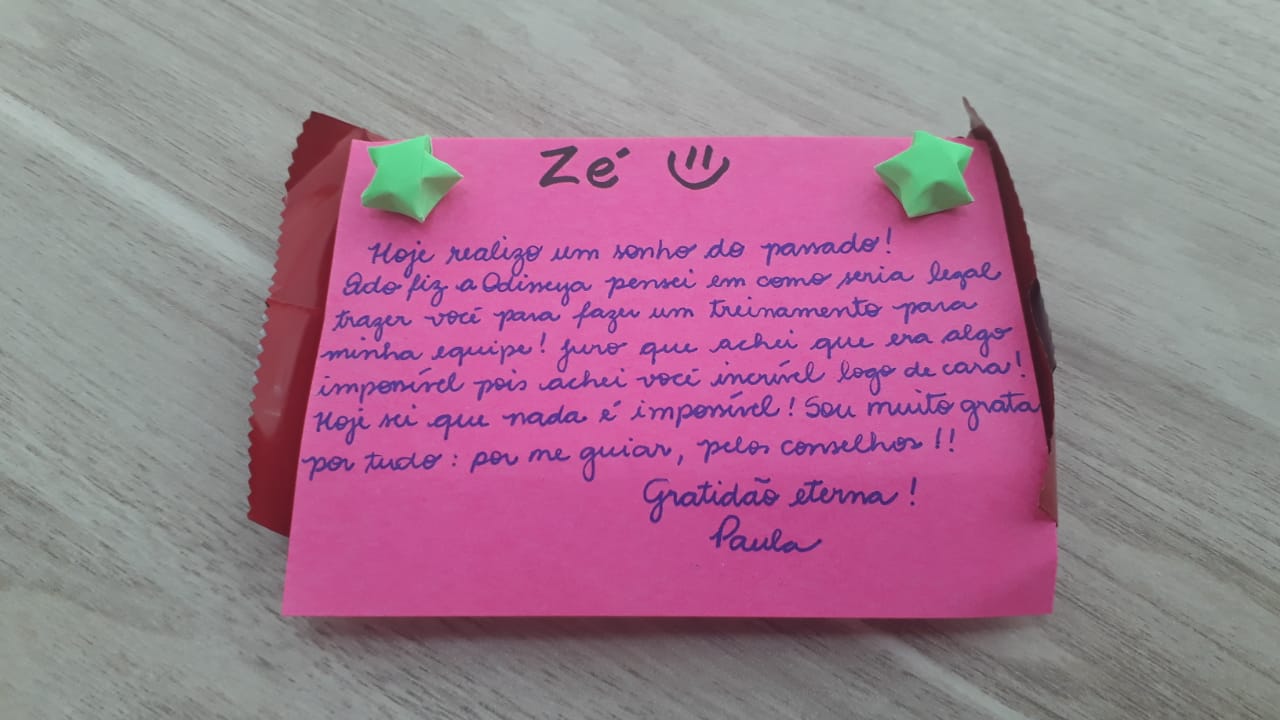 Zé
Hoje realizo um sonho do passado!
Qdo fiz a Odisseya pensei em como seria legal
trazer você para fazer um treinamento para
minha equipe! Juro que achei que era algo
impossível pois achei você incrível logo de cara!
Hoje sei que nada é impossível! Sou muito grata
por tudo: por me guiar, pelos conselhos!!
Gratidão eterna!
Paula